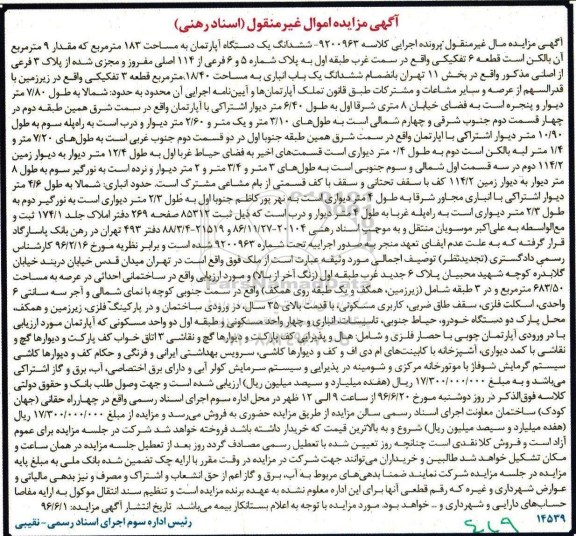 آگهی مزایده اموال غیرمنقول (اسناد رهنی)
آگهی مزایده مال غیرمنقول پرونده اجرایی کلاسه ۹۲۰۰۹۶۳- ششدانگ یک دستگاه آپارتمان به مساحت ۱۸۳ مترمربع که مقدار ۹ مترمربع
آن بالکن است قطعه ۶ تفکیکی واقع در سمت غرب طبقه اول به پلاک شماره ۵ و ۶ فرعی از ۱۱۴ اصلی مفروز و مجزی شده از پلاک ۳ فرعی
از اصلی مذکور واقع در بخش ۱۱ تهران بانضمام ششدانگ یک باب انباری به مساحت ۱۸/۴۰ مترمربع قطعه ۳ تفکیکی واقع در زیرزمین با
قدرالسهم از عرصه و سایر مشاعات و مشترکات طبق قانون تملک آپارتمان‌ها و آیین‌نامه اجرایی آن محدود به حدود: شمالا به طول ۷/۸۰ متر
دیوار و پنجره است به فضای خیابان ۸ متری شرقا اول به طول ۶/۴۰ متر دیوار اشتراکی با آپارتمان واقع در سمت شرق همین طبقه دوم در
چهار قسمت دوم جنوب شرقی و چهارم شمالی است به طول‌های ۳/۱۰ متر و یک متر و ۲/۶۰ متر دیوار و درب است به راه‌پله سوم به طول
۱۰/۹۰ متر دیوار اشتراکی با آپارتمان واقع در سمت شرق همین طبقه جنوبا اول در دو قسمت دوم جنوب غربی است به طول‌های ۷/۲۰ متر و
۱/۴ متر لبه بالکن است دوم به طول ۰/۴ متر دیواری است قسمت‌های اخیر به فضای حیاط غربا اول به طول ۱۲/۴ متر دیوار به دیوار زمین
۱۱۴/۲ دوم در سه قسمت اول شمالی و سوم جنوبی است به طول‌های ۳ متر و ۳/۴ متر و ۲ متر دیوار و نرده است به نورگیر سوم به طول ۸
متر دیوار به دیوار زمین ۱۱۴/۲ کف با سقف تحتانی و سقف با کف قسمتی از بام مشاعی مشترک است. حدود انباری: شمالا به طول ۴/۶ متر
دیوار اشتراکی با انباری مجاور شرقا به طول ۴ متر دیواری است به جنوبا اول به طول ۲/۳ متر دیواری است به نورگیر دوم به
طول ۲/۳ متر دیواری است به راه‌پله غربا به طول ۴ متر دیوار و درب است که ذیل ثبت ۸۵۳۱۲ صفحه ۲۶۹ دفتر املاک جلد ۱۷۴/۱ ثبت و
مع‌الواسطه به علی‌اکبر موسویان منتقل و به موجب اسناد رهنی ۲۰۱۰۴-۸۶/۱۱/۲۷ و ۲۱۵۱۹-۸۸/۳/۴ دفتر ۴۹۳ تهران در رهن بانک پاسارگاد
قرار گرفته که به علت عدم ایفای تعهد منجر به صدور اجراییه تحت شماره ۹۲۰۰۹۶۳ شده است و برابر نظریه مورخ ۹۶/۲/۱۶ کارشناس
رسمی دادگستری (تجدیدنظر) توصیف اجمالی مورد وثیقه عبارت است از ملک فوق واقع است در تهران میدان قدس خیابان دربند خیابان
گلابدره کوچه شهید محبیان پلاک ۶ جدید غرب طبقه اول (زنگ آخر از بالا) و مورد ارزیابی واقع در ساختمانی احداثی در عرصه به مساحت
۶۸۳/۵۰ مترمربع و در ۳ طبقه شامل (زیرزمین، همکف و یک طبقه روی همکف) واقع در سمت جنوبی کوچه با نمای شمالی و آجر سه سانتی ۶
واحدی، اسکلت فلزی، سقف طاق ضربی، کاربری مسکونی، با قدمت بالای ۳۵ سال، در ورودی ساختمان و در پارکینگ فلزی، زیرزمین و همکف،
محل پارک دو دستگاه خودرو، حیاط جنوبی، تاسیسات، انباری و چهار واحد مسکونی و طبقه اول دو واحد مسکونی که آپارتمان مورد ارزیابی
با در ورودی آپارتمان چوبی با حصار فلزی و شامل: هال و پذیرای کف پارکت و دیوارها گچ و نقاشی ۳ اتاق خواب کف پارکت و دیوارها گچ و
نقاشی با کمد دیواری، آشپزخانه با کابینت‌های ام دی اف و کف و دیوارها کاشی، سرویس بهداشتی ایرانی و فرنگی و حکام کف و دیوارها کاشی
سیستم گرمایش شوفاژ با موتورخانه مرکزی و شومینه در پذیرایی و سیستم سرمایش کولر آبی و دارای برق اختصاصی، آب، برق و گاز اشتراکی
می‌باشد و به مبلغ ۱۷/۳۰۰/۰۰۰/۰۰۰ ریال (هفده میلیارد و سیصد میلیون ریال) ارزیابی شده است و جهت وصول طلب بانک و حقوق دولتی
کلاسه فوق‌الذکر در روز دوشنبه مورخ ۹۶/۶/۲۰ از ساعت ۹ الی ۱۲ ظهر در محل اداره سوم اجرای اسناد رسمی واقع در چهارراه حقانی (جهان
کودک) ساختمان معاونت اجرای اسناد رسمی سالن مزایده از طریق مزایده حضوری به فروش می‌رسد و مزایده از مبلغ ۱۷/۳۰۰/۰۰۰/۰۰۰ ریال
(هفده میلیارد و سیصد میلیون ریال) شروع و به بالاترین قیمت که خریدار داشته باشد فروخته خواهد شد شرکت در جلسه مزایده برای عموم
آزاد است و فروش کلا نقدی است چنانچه روز تعیین شده با تعطیل رسمی مصادف گردد روز بعد از تعطیل جلسه مزایده در همان ساعت و
مکان تشکیل خواهد شد طالبین و خریداران می‌توانند جهت شرکت در مزایده در وقت مقرر با ارایه چک تضمین شده بانک ملی به مبلغ پایه
مزایده در جلسه مزایده شرکت نمایند ضمنا بدهی‌های مربوط به آب، برق و گاز اعم از حق انشعاب و اشتراک و مصرف و نیز بدهی مالیاتی و
عوارض شهرداری و غیره که رقم قطعی آنها برای این اداره معلوم نشده به عهده برنده مزایده است و تنظیم سند انتقال موکول به ارایه مفاصا
حساب‌های دارایی و شهرداری و .. خواهد بود. مورد مزایده با توجه به اعلام بستانکار بیمه می‌باشد. تاریخ انتشار آگهی مزایده: ۹۶/۶/۱
رئیس اداره سوم اجرای اسناد رسمی- نقیبی
۱۴۵۳۹